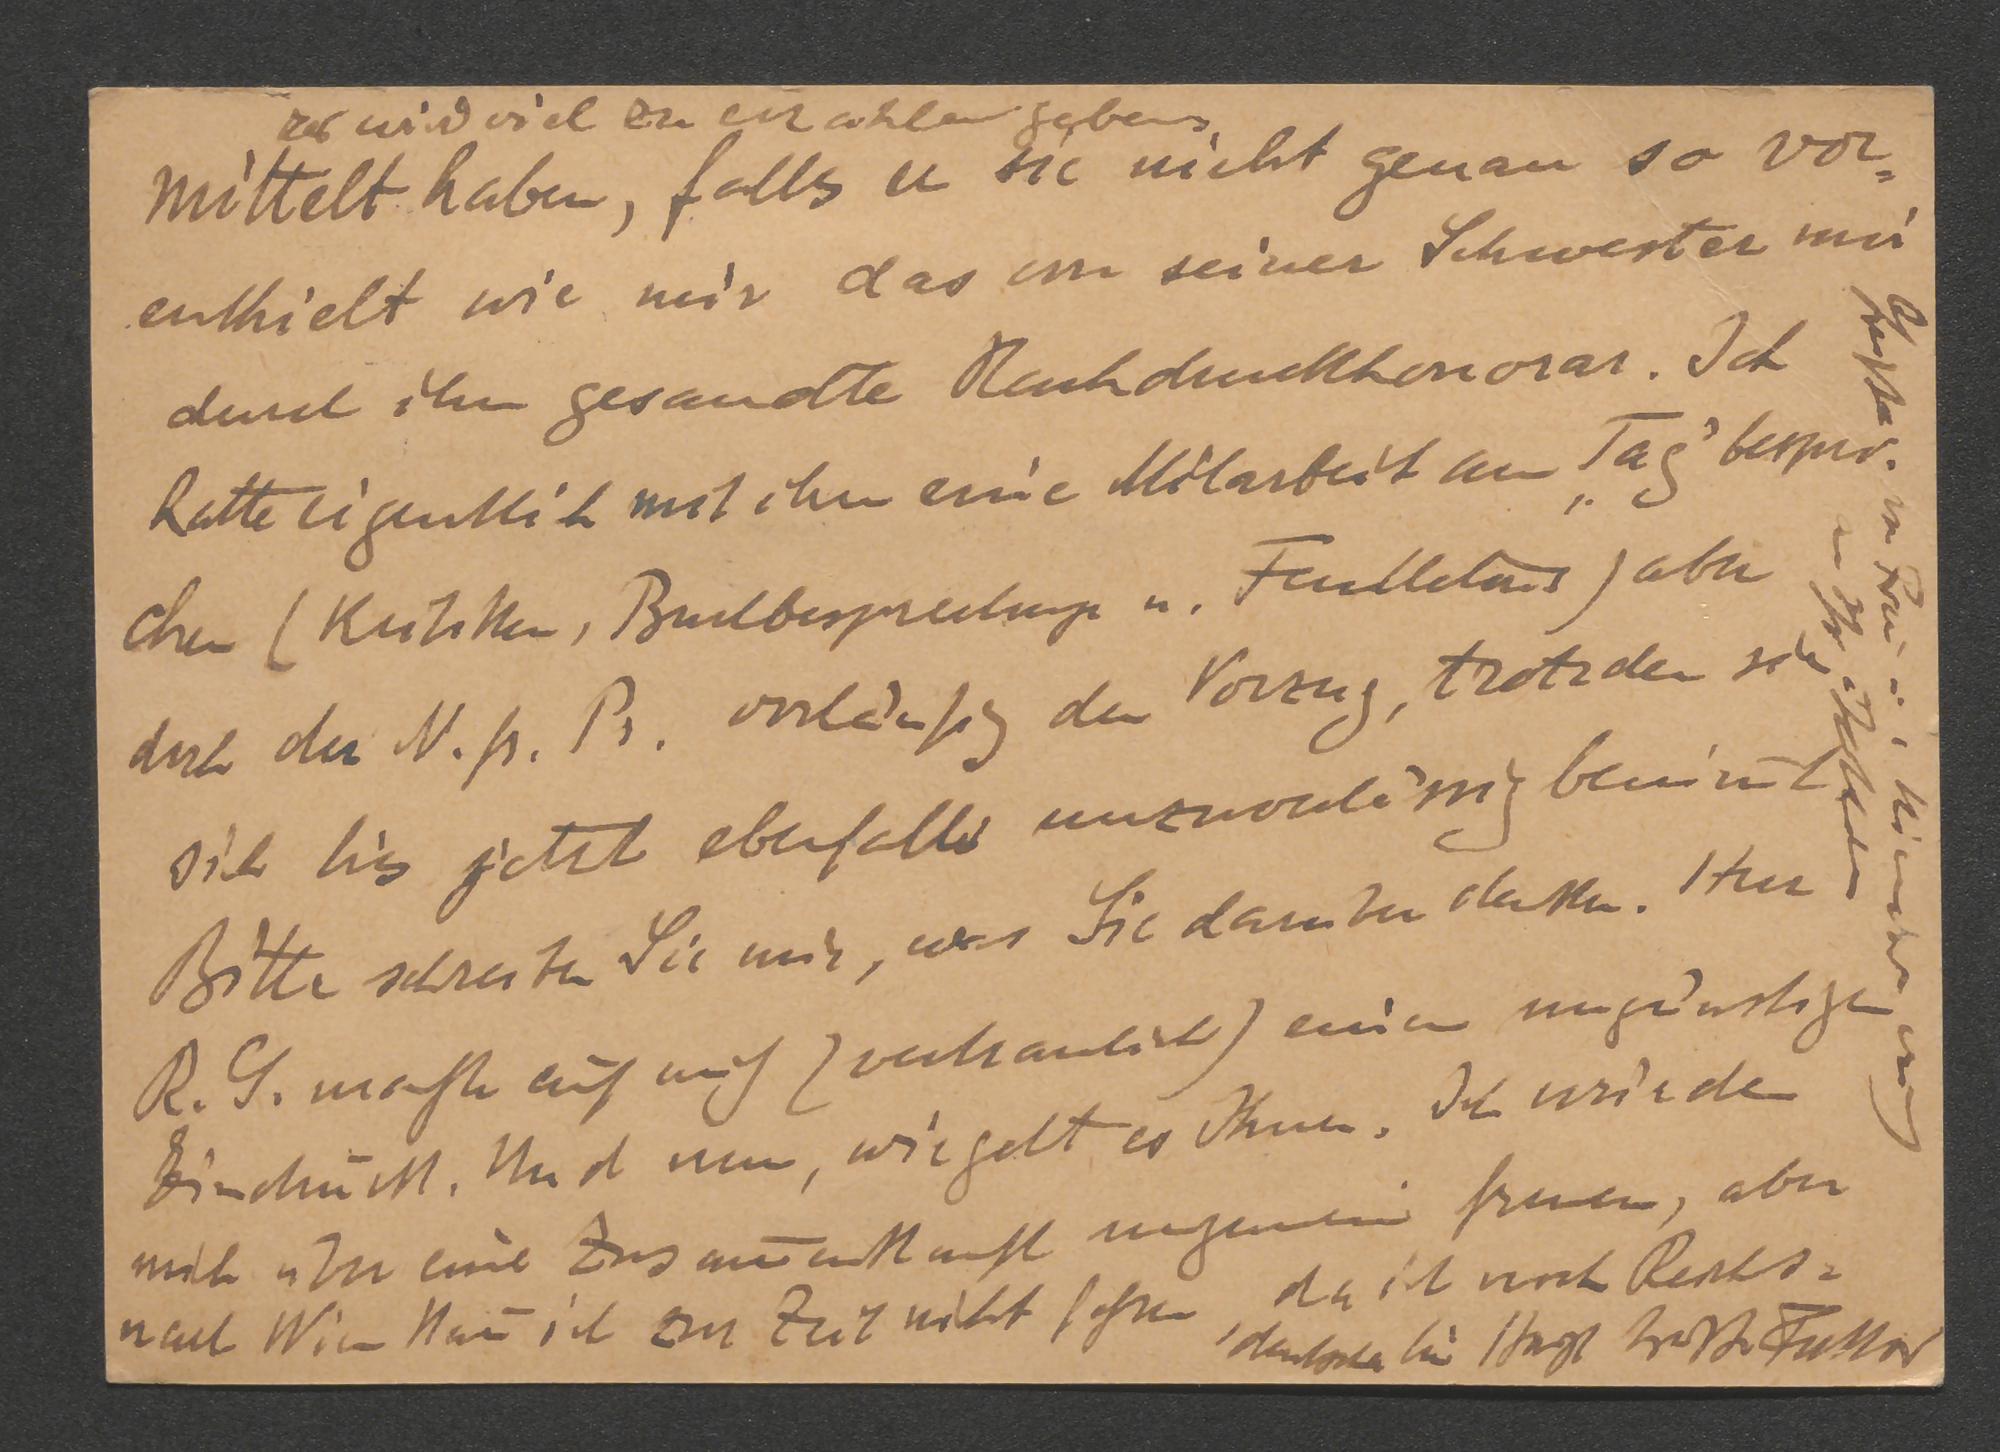 es wird viel zu erzählen geben.
mittelt haben, falls er sie nicht genau so vor-
enthielt wie mir das von seiner Schwester mir
durch ihn gesandte Nachdruckhonorar. Ich
hatte eigentlich mit ihm eine Mitarbeit am „Tag" bespro-
chen (Kritiken, Buchbesprechunge u. Feuilletons) aber
doch der N. fr. Pr. vorläufig den Vorzug, trotzdem sie
sich bis jetzt ebenfalls unzuverlässig benimmt
Bitte schreiben Sie mir, was Sie darüber denken. Herr
R. S. machte auf mich (vertraulich) einen ungünstigen
Eindruck. Und nun, wie geht es Ihnen. Ich würde
mich über eine Zusammenkunft ungemein freuen, aber
nach Wien kann ich zur Zeit nicht fahren, da ich noch Reichs-
deutscher bin